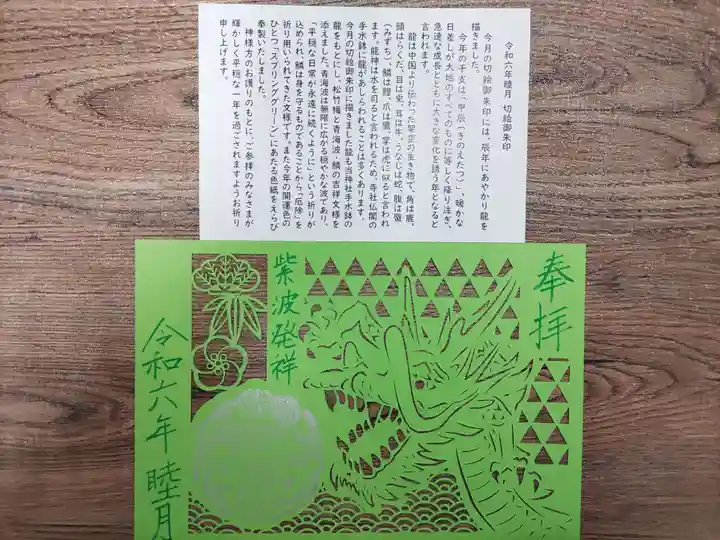 令和六年睦月 切絵御朱印
今月の切絵御朱印には、辰年にあやかり龍を
描きました。
今年の干支は「甲辰（きのえたつ）」、暖かな
日差しが大地のすべてのものに等しく降り注ぎ、
急速な成長とともに大きな変化を誘う年となると
言われます。
龍は中国より伝わった架空の生き物で、角は鹿、
頭はらくだ、目は兎、耳は牛、うなじは蛇、腹は蜃
（みずち）、鱗は鯉、爪は鷹、掌は虎に似ると言われ
ます。龍神は水を司ると言われるため、寺社仏閣の
手水鉢に龍があしらわれることは多くあります。
今月の切絵御朱印に描きました龍も当神社手水鉢の
龍をもとにし、松竹梅と青海波、鱗の吉祥文様を
添えました。青海波は無限に広がる穏やかな波であり、
「平穏な日常が永遠に続くように」という祈りが
込められ、鱗は身を守るものであることから「厄除」を
祈り用いられてきた文様です。また今年の開運色の
ひとつ「スプリンググリーン」にあたる色紙をえらび
奉製いたしました。
神様方のお護りのもとに、ご参拝のみなさまが
輝かしく平穏な一年を過ごされますようお祈り
申し上げます。
奉拝
紫波発祥
令和六年 睦月